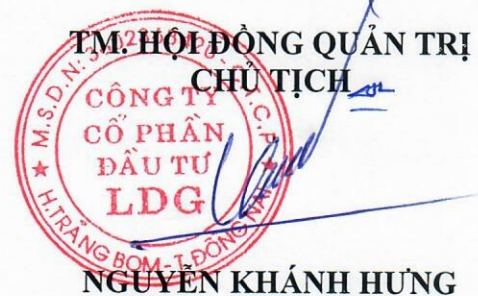 TM. HỘI ĐỒNG QUẢN TRỊ
CHỦ TỊCH
M.S.D.N:
C.T.C.P
CÔNG TY
CỔ PHẦN
ĐẦU TƯ
LDG
H.TRẢNG BOM - T.ĐỒNG NAI
NGUYỄN KHÁNH HƯNG